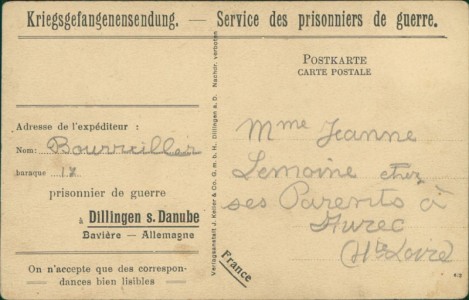 Kriegsgefangenensendung. — Service des prisonniers de guerre.
POSTKARTE
CARTE POSTALE
Adresse de l'expéditeur :
Nom:
baraque 17
prisonnier de guerre
à Dillingen s. Danube
Bavière — Allemagne
On n'accepte que des correspon-
dances bien lisibles
Verlagsanstalt J. Keller & Co. G. m. b. H. Dillingen a. D. Nachdr. verboten
Mme Jeanne
Lemoine chez
ses Parents à
Aurec
(Hte Loire)
France